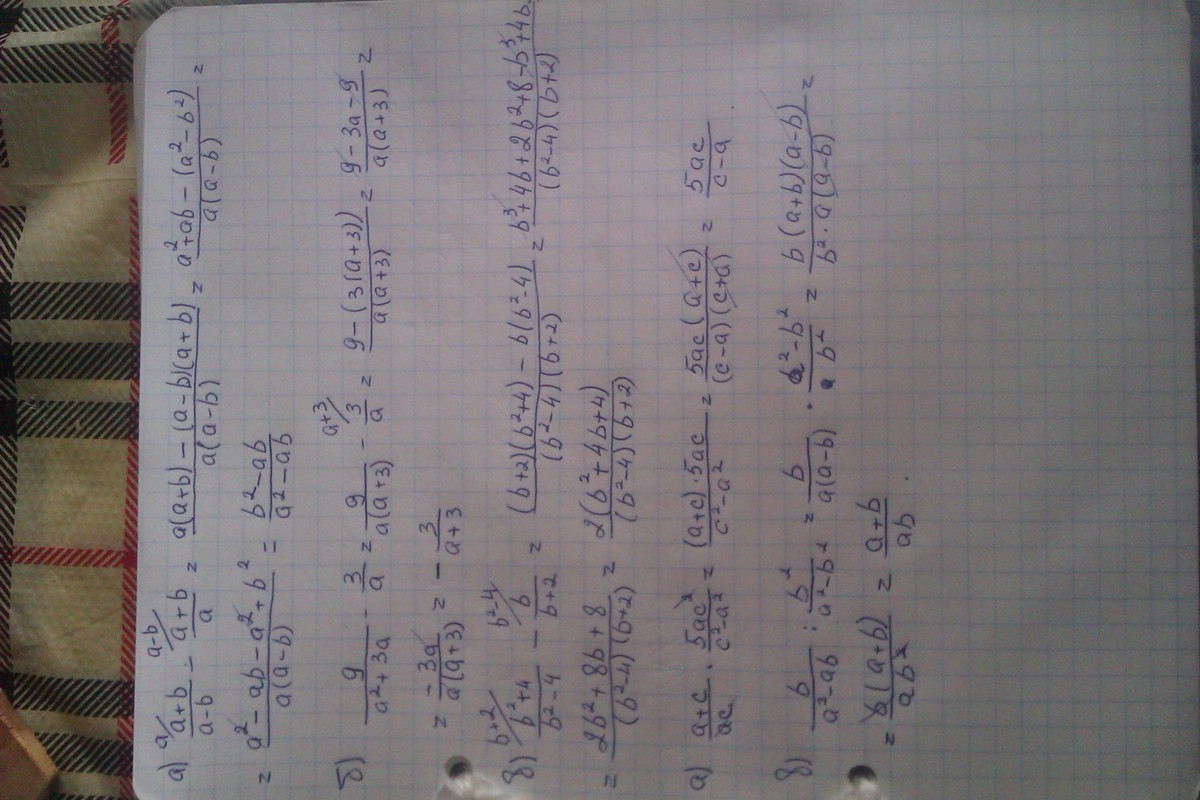 а) a/ (a+b)/(a-b) - a-b/ (a+b)/a = (a(a+b) - (a-b)(a+b))/(a(a-b)) = (a²+ab-(a²-b²))/(a(a-b)) =
= (a²-ab-a²+b²)/(a(a-b)) = (b²-ab)/(a²-ab)
б) 9/(a²+3a) - 3/a = 9/(a(a+3)) - a+3/ 3/a = (9-(3(a+3)))/(a(a+3)) = (9-3a-9)/(a(a+3)) =
= (-3a)/(a(a+3)) = - 3/(a+3)
в) b+2/ (b²+4)/(b²-4) - b²-4/ b/(b+2) = ((b+2)(b²+4) - b(b²-4))/((b²-4)(b+2)) = (b³+4b+2b²+8-b³+4b)/((b²-4)(b+2))
= (2b²+8b+8)/((b²-4)(b+2)) = (2(b²+4b+4))/((b²-4)(b+2))
а) (a+c)/(ac) · (5ac²)/(c²-a²) = ((a+c)·5ac)/(c²-a²) = (5ac(a+c))/((c-a)(c+a)) = (5ac)/(c-a) .
в) b/(a²-ab) : b²/(a²-b²) = b/(a(a-b)) · (a²-b²)/b² = (b(a+b)(a-b))/(b²·a(a-b)) =
= (b(a+b))/(ab²) = (a+b)/(ab) .